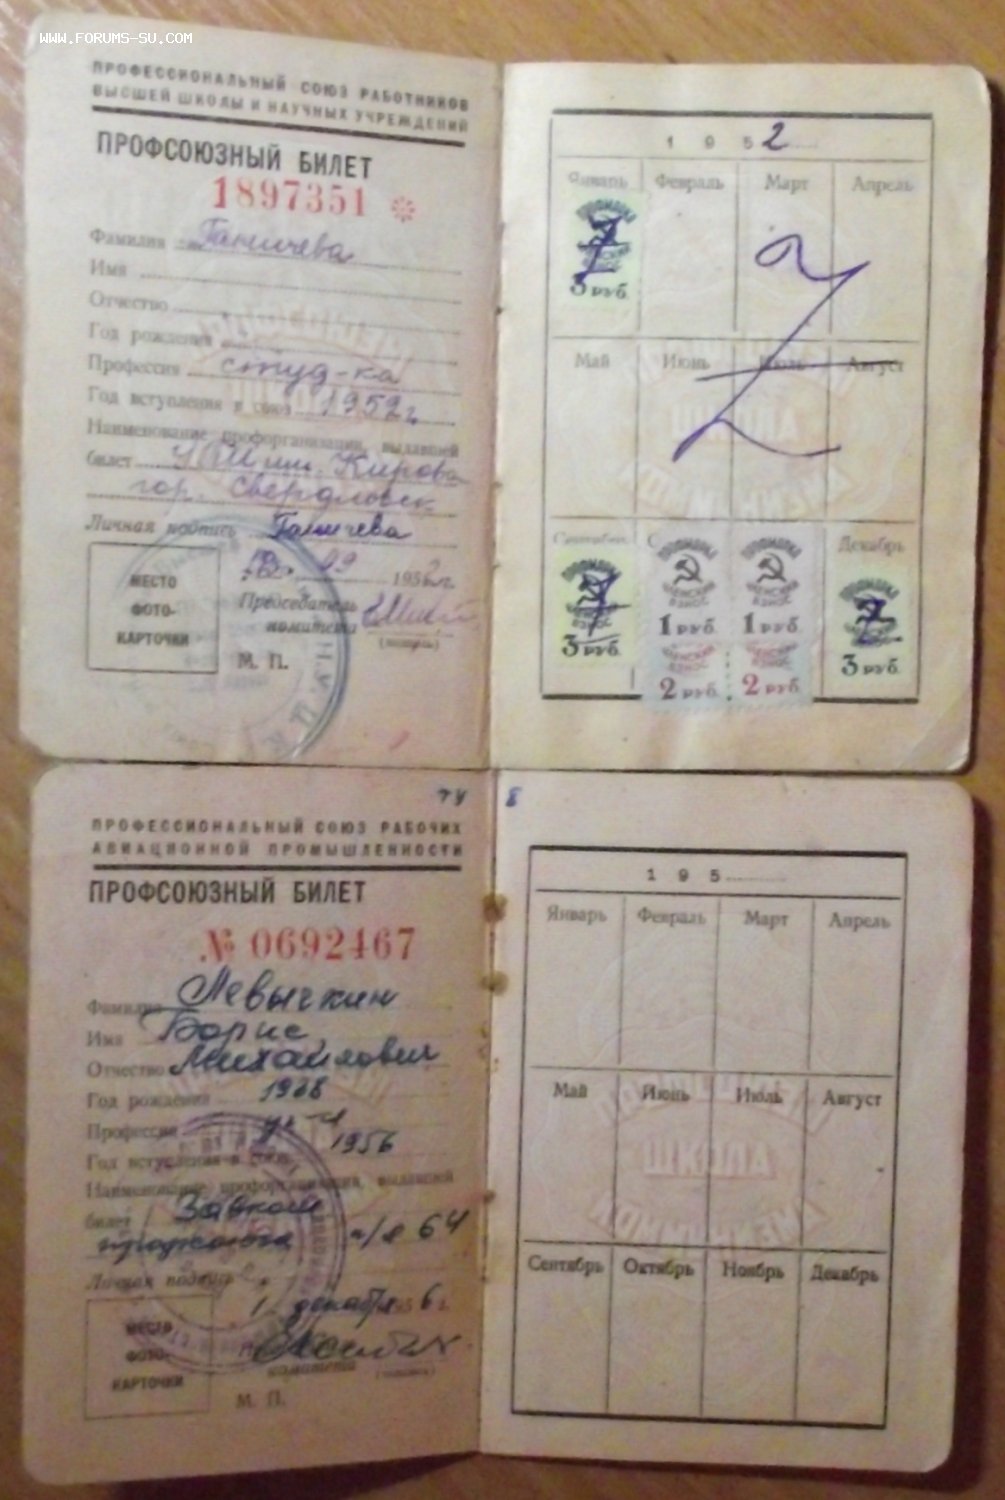 WWW.FORUMS-SU.COM
ПРОФЕССИОНАЛЬНЫЙ СОЮЗ РАБОТНИКОВ
ВЫСШЕЙ ШКОЛЫ И НАУЧНЫХ УЧРЕЖДЕНИЙ
ПРОФСОЮЗНЫЙ БИЛЕТ
1897351
Фамилия Ганичева
Имя
Отчество
Год рождения
Профессия студ-ка
Год вступления в союз 1952 г
Наименование профорганизации, выдавшей
билет им. Кирова
гор. Свердловск
Личная подпись Ганичева
09 195 г.
Председатель
комитета
(подпись)
МЕСТО
ФОТО-
КАРТОЧКИ
М. П.
1952
Январь Февраль Март Апрель
3 руб.
Май Июнь Июль Август
Сентябрь Декабрь
ПРОФСОЮЗ ПРОФСОЮЗ
ЧЛЕНСКИЙ ЧЛЕНСКИЙ
ВЗНОС ВЗНОС
3 руб. 1 руб. 1 руб. 3 руб.
ЧЛЕНСКИЙ ЧЛЕНСКИЙ
ВЗНОС ВЗНОС
2 руб. 2 руб.
8
ПРОФЕССИОНАЛЬНЫЙ СОЮЗ РАБОЧИХ
АВИАЦИОННОЙ ПРОМЫШЛЕННОСТИ
ПРОФСОЮЗНЫЙ БИЛЕТ
№ 0692467
Фамилия Левычкин
Имя Борис
Отчество Михайлович
Год рождения 1938
Профессия
Год вступления в союз 1956
Наименование профорганизации, выдавшей
билет Завком
профсоюза п/я 64
Личная подпись
1 декабря 1956 г.
комитета
(подпись)
МЕСТО
ФОТО-
КАРТОЧКИ
М. П.
195
Январь Февраль Март Апрель
Май Июнь Июль Август
Сентябрь Октябрь Ноябрь Декабрь